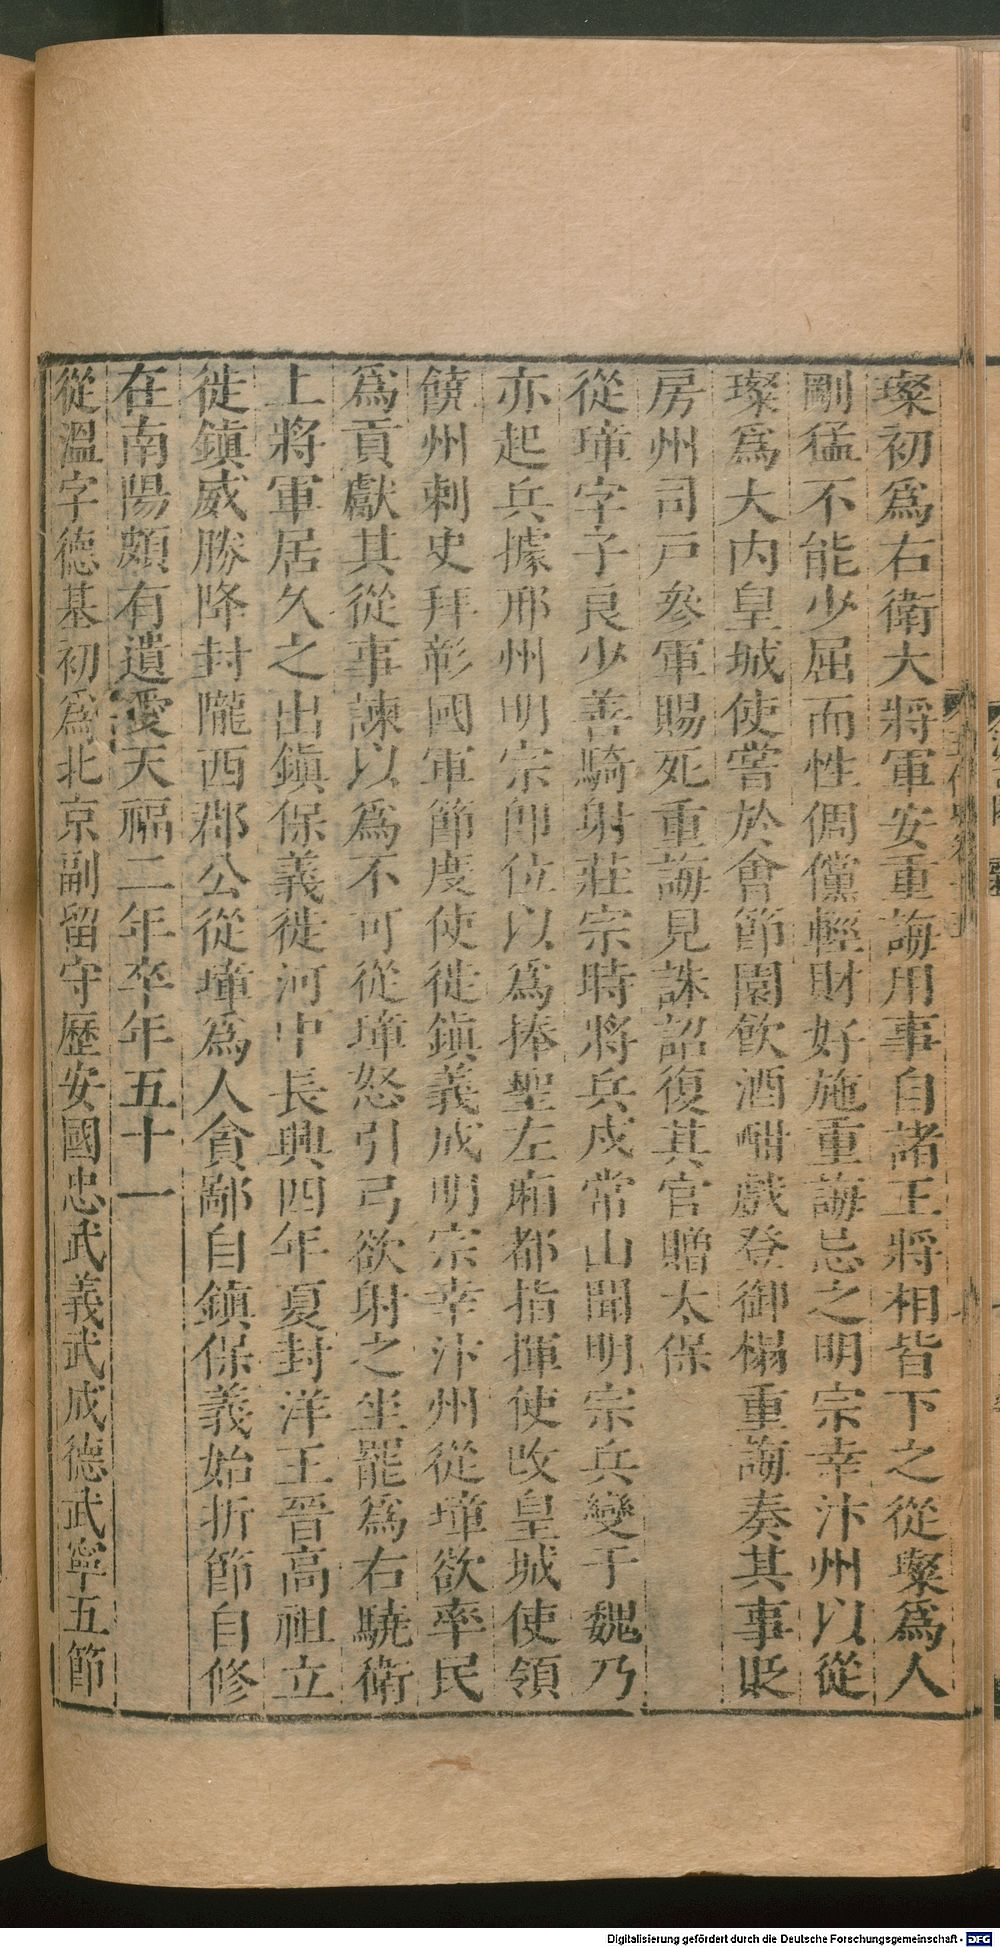 璨初爲右衛大將軍安重誨用事自諸王將相皆下之從璨爲人
剛猛不能少屈而性倜儻輕財好施重誨忌之明宗幸汴州以從
璨爲大内皇城使嘗於會節園飲酒酣戲登御榻重誨奏其事貶
房州司戸參軍賜死重誨見誅詔復其官贈太保
從璋字子良少善騎射莊宗時將兵戍常山聞明宗兵變于魏乃
亦起兵據邢州明宗即位以爲捧聖左廂都指揮使改皇城使領
饒州刺史拜彰國軍節度使徙鎮義成明宗幸汴州從璋欲率民
爲貢獻其從事諫以爲不可從璋怒引弓欲射之坐罷爲右驍衛
上將軍居久之出鎮保義徙河中長興四年夏封洋王晉高祖立
徙鎮威勝降封隴西郡公從璋爲人貪鄙自鎮保義始折節自修
在南陽頗有遺愛天福二年卒年五十一
從溫字德基初爲北京副留守歷安國忠武義武成德武寧五節
Digitalisierung gefördert durch die Deutsche Forschungsgemeinschaft - DFG